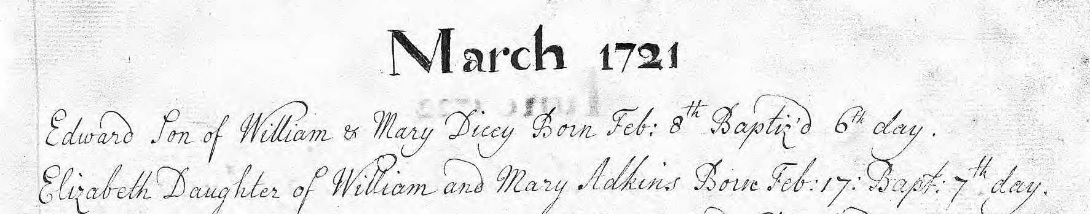 March 1721
Edward Son of William & Mary Dicey Born Feb: 8th Baptiz'd 6th day.
Elizabeth Daughter of William and Mary Adkins Born Feb: 17: Bapt: 7th day.